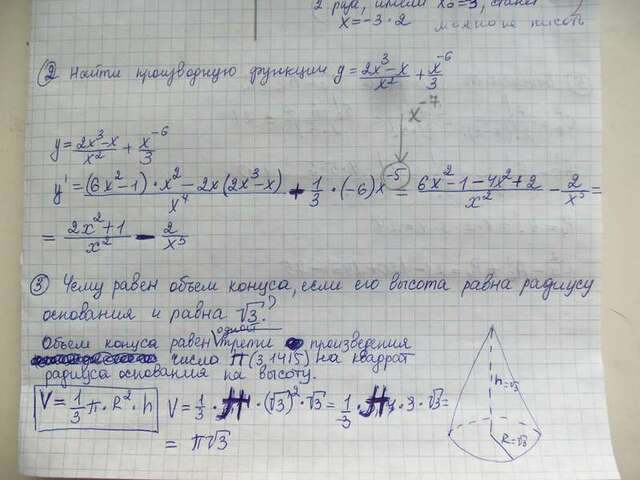 2 раза, имели x₀=3, стало
x=-3·2 можно не писать
② Найти производную функции y = (2x³-x)/x² + x⁻⁶/3
x⁻⁷
y = (2x³-x)/x² + x⁻⁶/3
y' = ((6x²-1)·x² - 2x(2x³-x))/x⁴ + 1/3·(-6)x⁻⁵ = (6x²-1-4x²+2)/x² - 2/x⁵ =
= (2x²+1)/x² - 2/x⁵
③ Чему равен объем конуса, если его высота равна радиусу
основания и равна √3?
Объем конуса равен одной трети произведения
число π (3,1415) на квадрат
радиуса основания на высоту.
V = 1/3 π·R²·h V = 1/3·π·(√3)²·√3 = 1/3·π·3·√3 =
= π√3
h=√3
R=√3